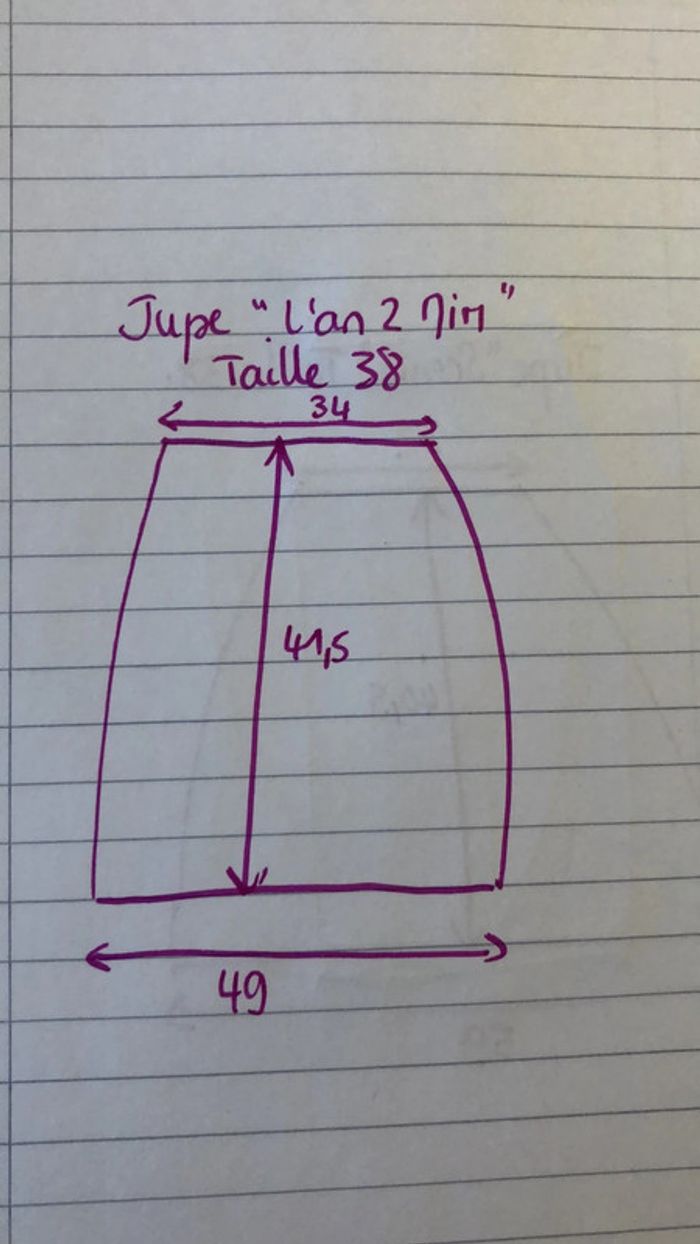 Jupe "L'an 2 Min"
Taille 38
34
41,5
49